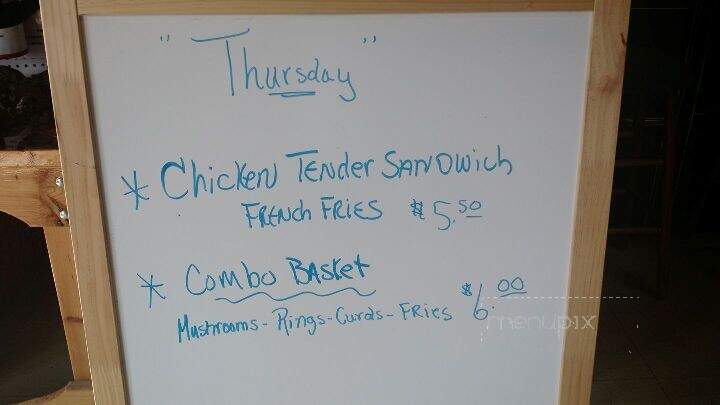 "Thursday"
* Chicken Tender Sandwich
French Fries $5.50
* Combo Basket
Mushrooms - Rings - Curds - Fries $6.00
menupix